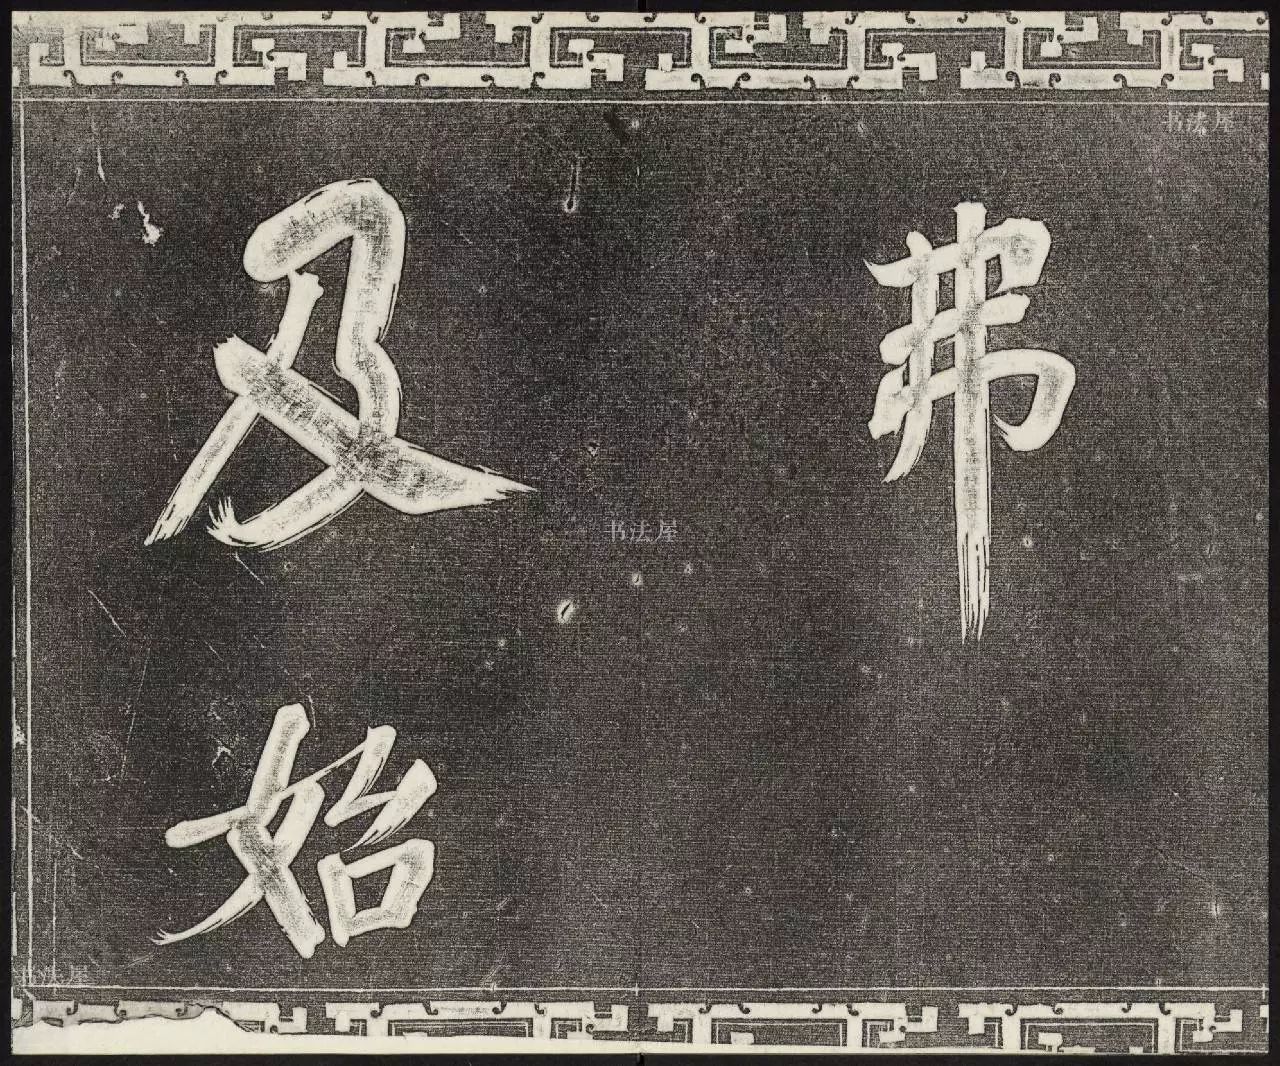 弗
及始
书法屋
书法屋
书法屋